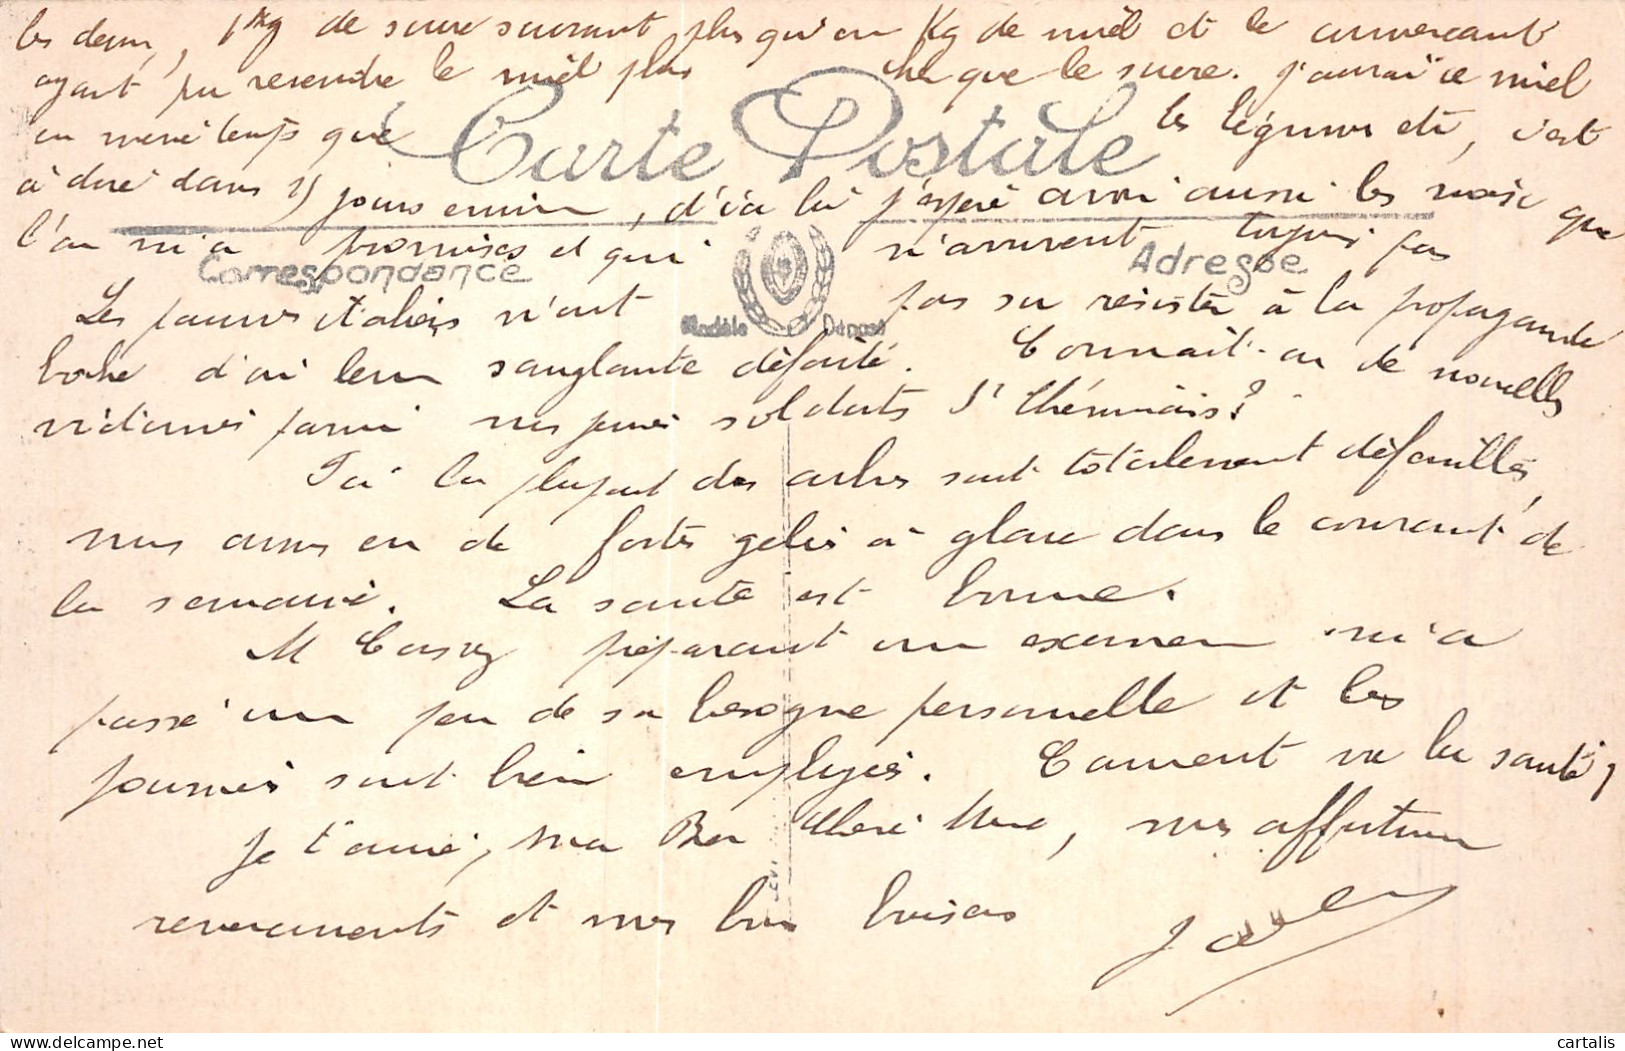 les deux, 1 Kg de sucre sucrant plus qu'un Kg de miel et le commerçant
ayant pu revendre le miel plus cher que le sucre. J'aurai ce miel
en même temps que les légumes etc, c'est
Carte Postale
à dire dans 15 jours environ, d'ici là j'espère avoir aussi les noix que
l'on m'a promises et qui n'arrivent toujours pas
Correspondance
Adresse
Les pauvres italiens n'ont pas su résister à la propagande
Modèle Déposé
boche d'où leur sanglante défaite. Connait-on de nouvelles
victimes parmi nos jeunes soldats St Théminois?
Ici la plupart des arbres sont totalement défeuillés,
nous avons eu de fortes gelées à glace dans le courant de
la semaine. La santé est bonne.
M préparant un examen m'a
passé un peu de sa besogne personnelle et les
journées sont bien employées. Comment va la santé,
Je t'envoie, ma Bien Chère Mère, nos affectueux
remerciements et nos bons baisers